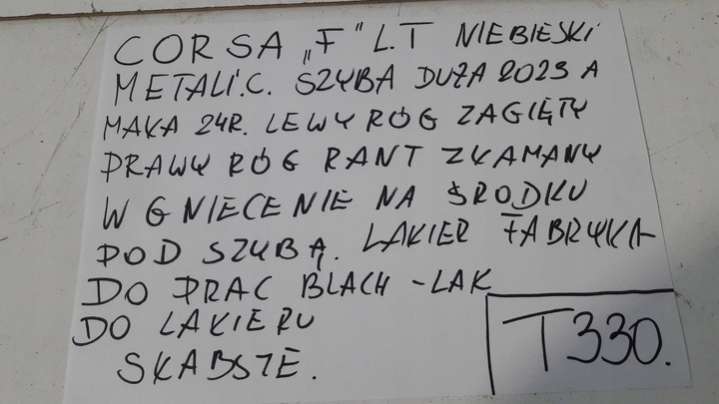 CORSA „F” L.T NIEBIESKI
METALI.C. SZYBA DUŻA 2023 A
MAKA 24R. LEWY RÓG ZAGIĘTY
PRAWY RÓG RANT ZŁAMANY
WGNIECENIE NA ŚRODKU
POD SZYBĄ. LAKIER FABRYKA
DO PRAC BLACH - LAK
DO LAKIERU
SŁABSZE.
T330.